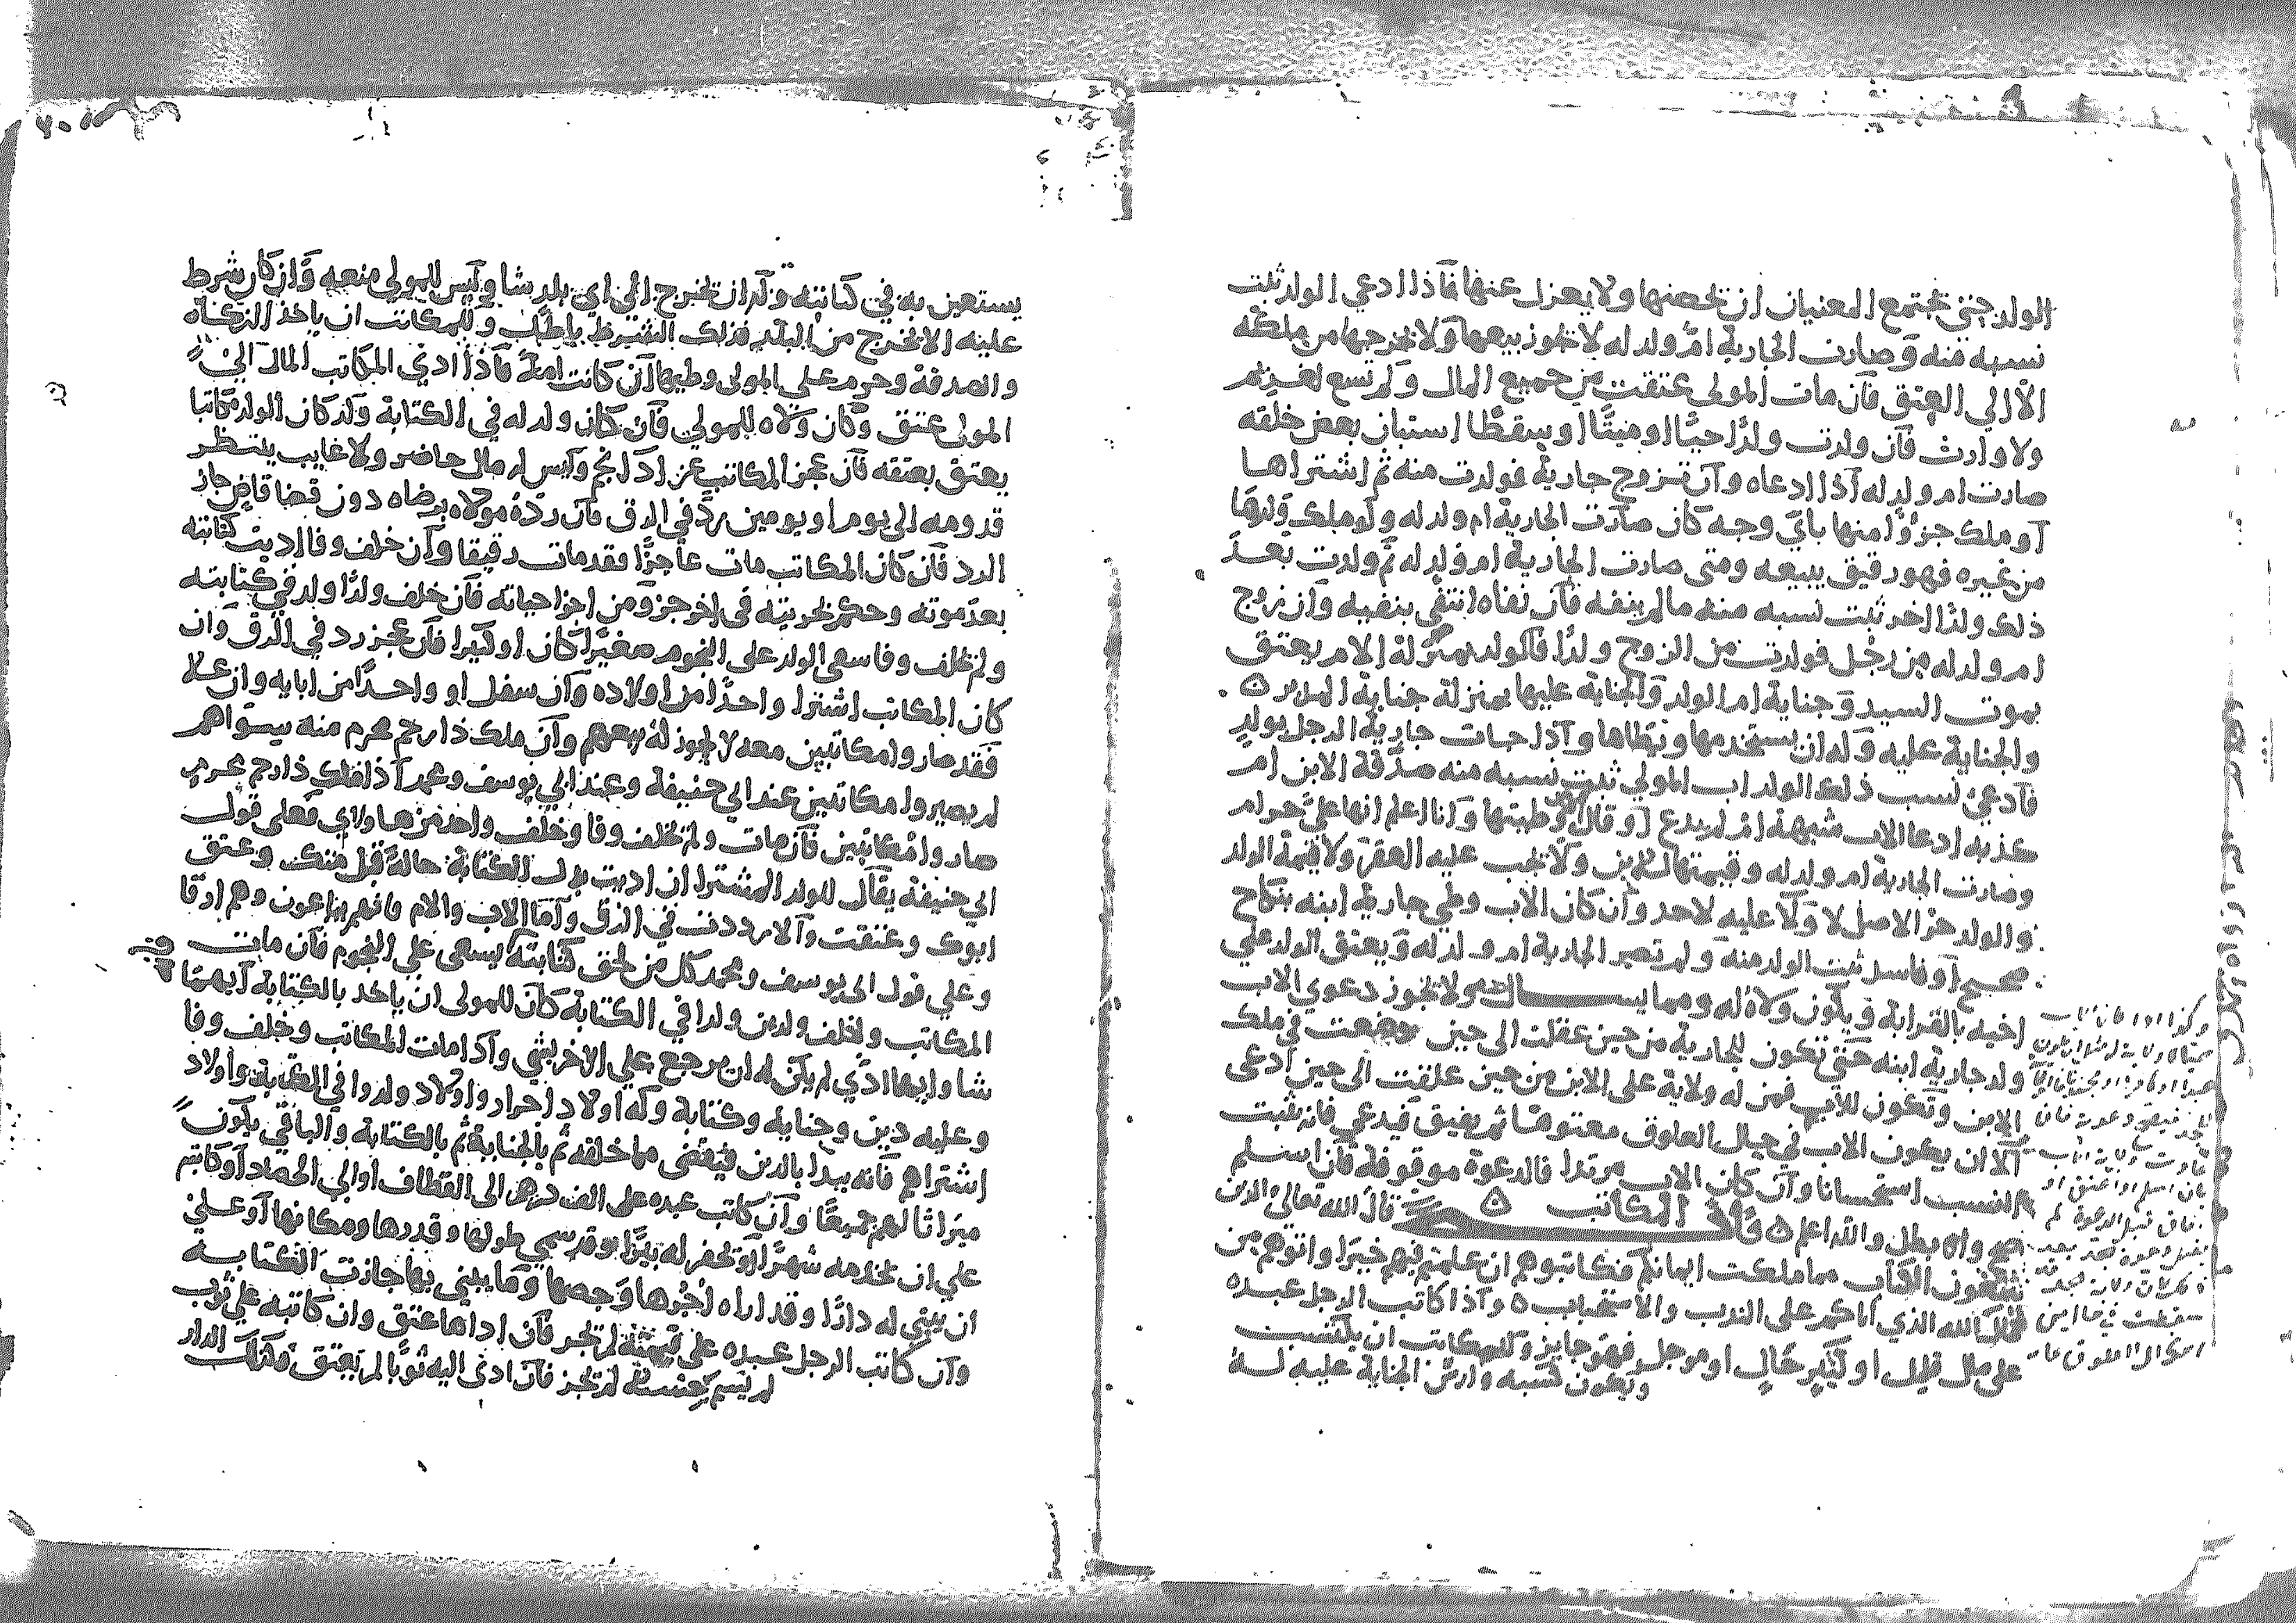 الولد حتى يجتمع المعنيان ان يحصنها ولا يعزل عنها فاذا ادعي الولد ثبت
نسبه منه وصارت الجارية ام ولد له لا يجوز بيعها ولا يخرجها من ملكه
الا الي العتق فان مات المولى عتقت من جميع المال ولم تسع لغريم
ولا وارث فان ولدت ولدا حيا او ميتا او سقطا استبان بعض خلقه
صارت ام ولد له اذا ادعاه وان تزوج جارية فولدت منه ثم اشتراها
او ملك جزوا منها باي وجه كان صارت الجارية ام ولد له ولو ملك ولدها
من غيره فهو رقيق يبيعه ومتى صارت الجارية ام ولد له ثم ولدت بعد
ذلك ولدا اخر ثبت نسبه منه مالم ينفه فان نفاه انتفي بنفيه وان زوج
ام ولد له من رجل فولدت من الزوج ولدا فالولد بمنزلة الام يعتق
بموت السيد وجناية ام الولد والجناية عليها بمنزلة جناية المدبر ه
والجناية عليه وله ان يستخدمها ويطاها واذا جات جارية الرجل بولد
فادعى نسب ذلك الولد اب المولي ثبت نسبه منه صدقه الابن ام
كذبه ادعا الاب شبهة ام لم يدع او قال وطيتها وانا اعلم انها علي حرام
وصارت الجارية ام ولد له وقيمتها للابن ولا يجب عليه العقر ولا قيمة الولد
والولد حر الاصل لا ولا عليه لاحد وان كان الاب وطي جارية ابنه بنكاح
صحيح او فاسد ثبت الولد منه ولم تصر الجارية ام ولد له ويعتق الولد علي
اخيه بالقرابة ويكون ولاه له ومما يسال ولا تجوز دعوي الاب
ولد جارية ابنه حتى تكون الجارية من حين علقت الى حين وضعت في ملك
الابن وتكون للاب فمن له ولاية على الابن من حين علقت الى حين ادعى
الا ان يكون الاب في حال العلوق معتوها ثم يفيق فيدعي فانه يثبت
النسب استحسانا وان كان الاب مرتدا فالدعوة موقوفة فان اسلم
صح والا بطل والله اعلم ه المكاتب ه قال الله تعالى والذين
يبتغون الكتاب مما ملكت ايمانكم فكاتبوهم ان علمتم فيهم خيرا واتوهم من
مال الله الذي اتاكم على الندب والاستحباب ه واذا كاتب الرجل عبده
على مال قليل او كثير حال او موجل فهو جايز وللمكاتب ان يكتسب
ويكون كسبه وارش الجناية عليه له
يستعين به في كتابته وله ان يخرج الى اي بلد شا وليس للمولى منعه وان كان شرط
عليه الا يخرج من البلد فذلك الشرط باطل وللمكاتب ان ياخذ الزكاه
والصدقة وحرم على المولى وطيها ان كانت امة فاذا ادى المكاتب المال الي
المولى عتق وكان ولاه للمولي فان كان ولد له في الكتابة ولد كان الولد مكاتبا
يعتق بعتقه فان عجز المكاتب عن ادا نجم وليس له مال حاضر ولا غايب ينتظر
قدومه الى يوم او يومين رد في الرق فان رده مولاه برضاه دون قضا قاض جاز
الرد فان كان المكاتب مات عاجزا فقد مات رقيقا وان خلف وفا اديت كتابته
بعد موته وحكم بحريته في اخر جزو من اجزا حياته فان خلف ولدا ولد في كتابته
ولم يخلف وفا سعى الولد على النجوم صغيرا كان او كبيرا فان عجز رد في الرق وان
كان المكاتب اشترا واحدا من اولاده وان سفل او واحدا من ابايه وان علا
فقد صاروا مكاتبين معه لا يجوز له بيعهم وان ملك ذا رحم محرم منه سواهم
لم يصيروا مكاتبين عند ابي حنيفة وعند ابي يوسف ومحمد اذا ملك ذا رحم محرم
صاروا مكاتبين فان مات ولم يخلف وفا وخلف واحد من هاولاي فعلى قول
ابي حنيفة يقال للولد المشترا ان اديت بدل الكتابة حالة قبل منك وعتق
ابوك وعتقت والا رددت في الرق واما الاب والام فانهم يباعون وهم ارقا
وعلي قول ابي يوسف ومحمد كل من لحق كتابته يسعى علي النجوم فان مات
المكاتب وخلف ولدين ولدا في الكتابة كان للمولى ان ياخد بالكتابة ايهما
شا وايهما ادى لم يكن له ان يرجع علي الاخر بشي واذا مات المكاتب وخلف وفا
وعليه دين وجناية وكتابة وله اولاد احرار واولاد ولدوا في الكتابة واولاد
اشتراهم فانه يبدا بالدين فيقضى مما خلفه ثم بالجناية ثم بالكتابة والباقي يكون
ميراثا لهم جميعا وان كاتب عبده على الف درهم الى القطاف او الي الحصاد او كاتبه
علي ان يخدمه شهرا او يحفر له بيرا وقد سمي طولها وقدرها ومكانها او على
ان يبني له دارا وقد اراه اجرها وجصها وما يبنى بها جازت الكتابة
وان كاتب الرجل عبده على قيمته لم تجز فان اداها عتق وان كاتبه علي ثوب
لم يسم جنسه لم تجز فان ادى اليه ثوبا لم يعتق وكذلك الدار